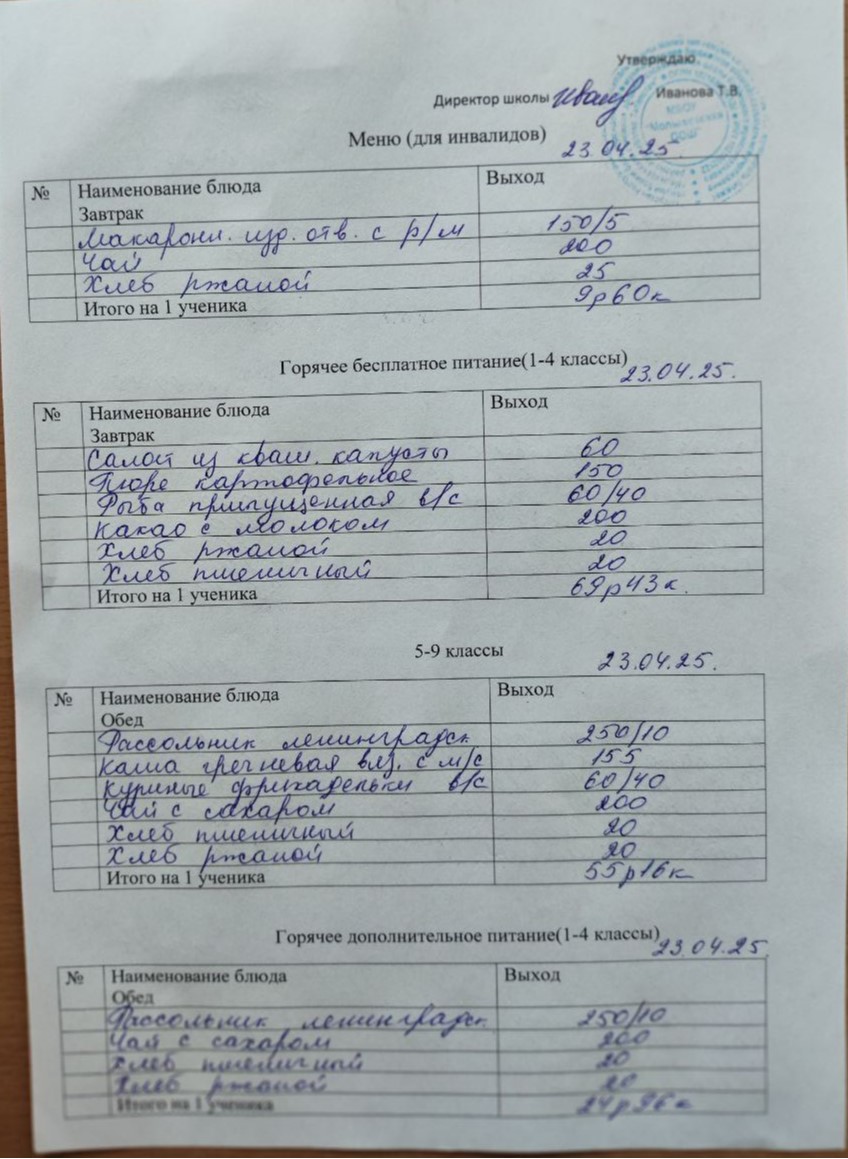 Утверждаю
Директор школы Иванова Т.В.
Меню (для инвалидов)
23.04.25.
№ Наименование блюда Выход
Завтрак
Макарон. изд. отв. с р/м 150/5
Чай 200
Хлеб ржаной 25
Итого на 1 ученика 9р60к
Горячее бесплатное питание(1-4 классы)
23.04.25.
№ Наименование блюда Выход
Завтрак
Салат из кваш. капусты 60
Пюре картофельное 150
Рыба припущенная в/с 60/40
Какао с молоком 200
Хлеб ржаной 20
Хлеб пшеничный 20
Итого на 1 ученика 69р43к.
5-9 классы
23.04.25.
№ Наименование блюда Выход
Обед
Рассольник ленинградск 250/10
Каша гречневая вяз. с м/с 155
Куриные фрикадельки в/с 60/40
Чай с сахаром 200
Хлеб пшеничный 20
Хлеб ржаной 20
Итого на 1 ученика 55р16к
Горячее дополнительное питание(1-4 классы)
23.04.25.
№ Наименование блюда Выход
Обед
Рассольник ленинградск. 250/10
Чай с сахаром 200
Хлеб пшеничный 20
Хлеб ржаной 20
Итого на 1 ученика 24р96к